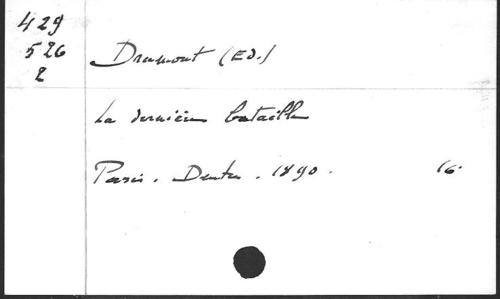 429
526
2
Drumont (Ed.)
La dernière bataille
Paris. Dentu. 1890. 16.